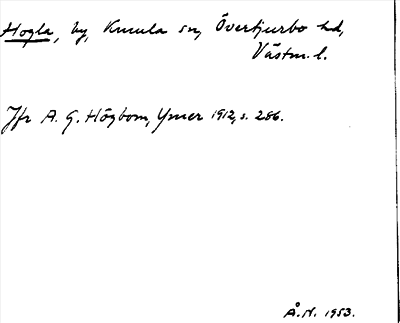 Hogla, by, Kumla sn, Övertjurbo hd,
Västm. l.
Jfr A. G. Högbom, Ymer 1912, s. 286.
Å.N. 1953.